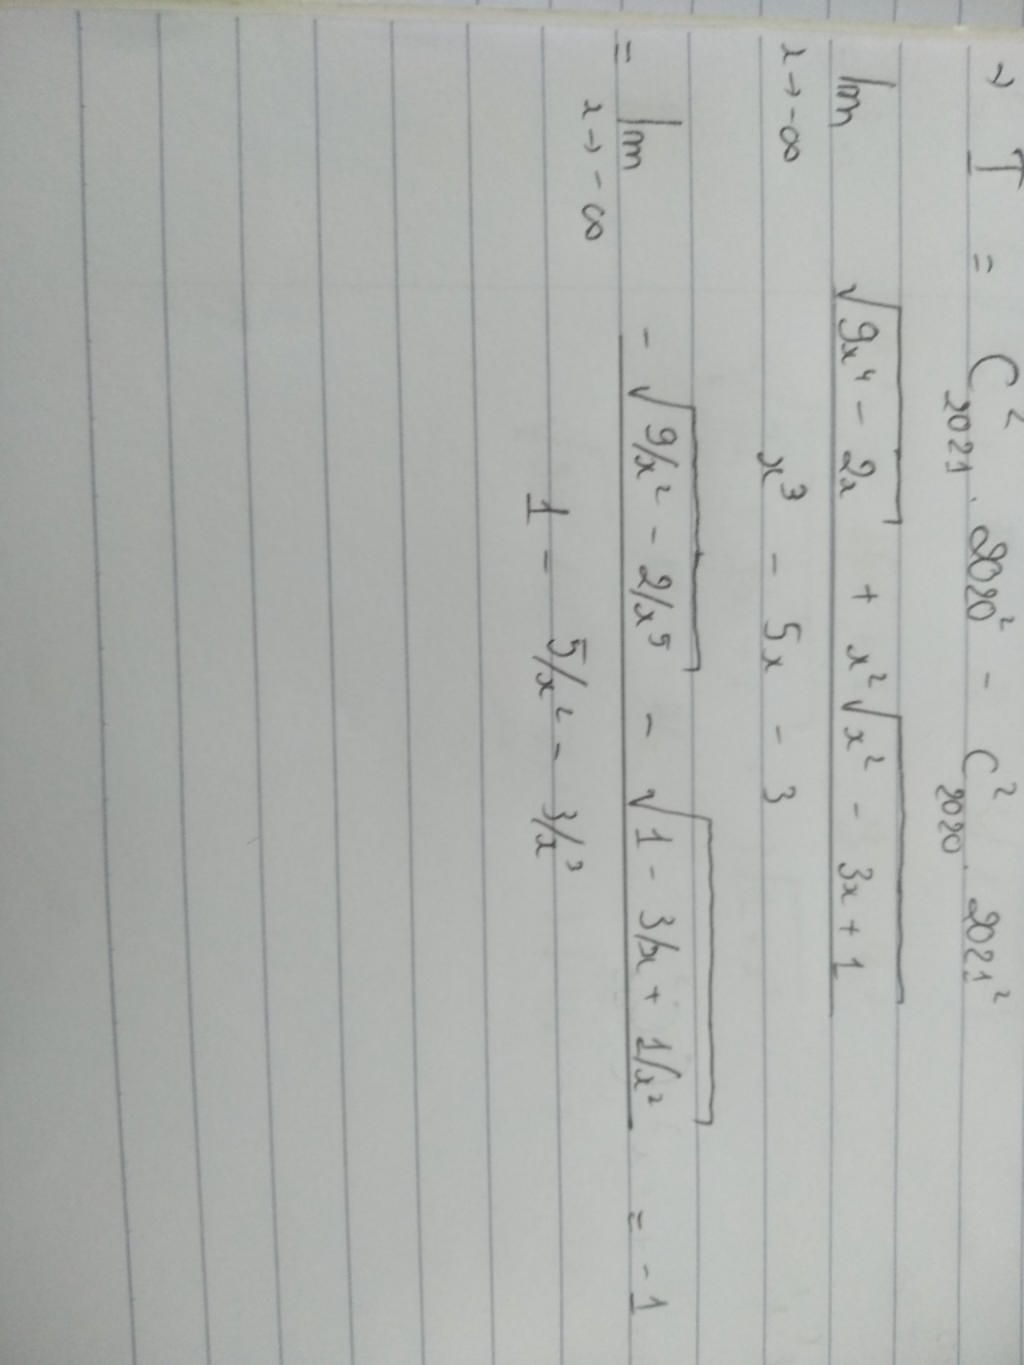 → T = C²₂₀₂₁ . 2020² - C²₂₀₂₀ . 2021²
lim √(9x⁴ - 2x) + x²√(x² - 3x + 1)
x→-∞ x³ - 5x - 3
= lim -√(9/x² - 2/x⁵) - √(1 - 3/x + 1/x²) = -1
x→-∞ 1 - 5/x² - 3/x³